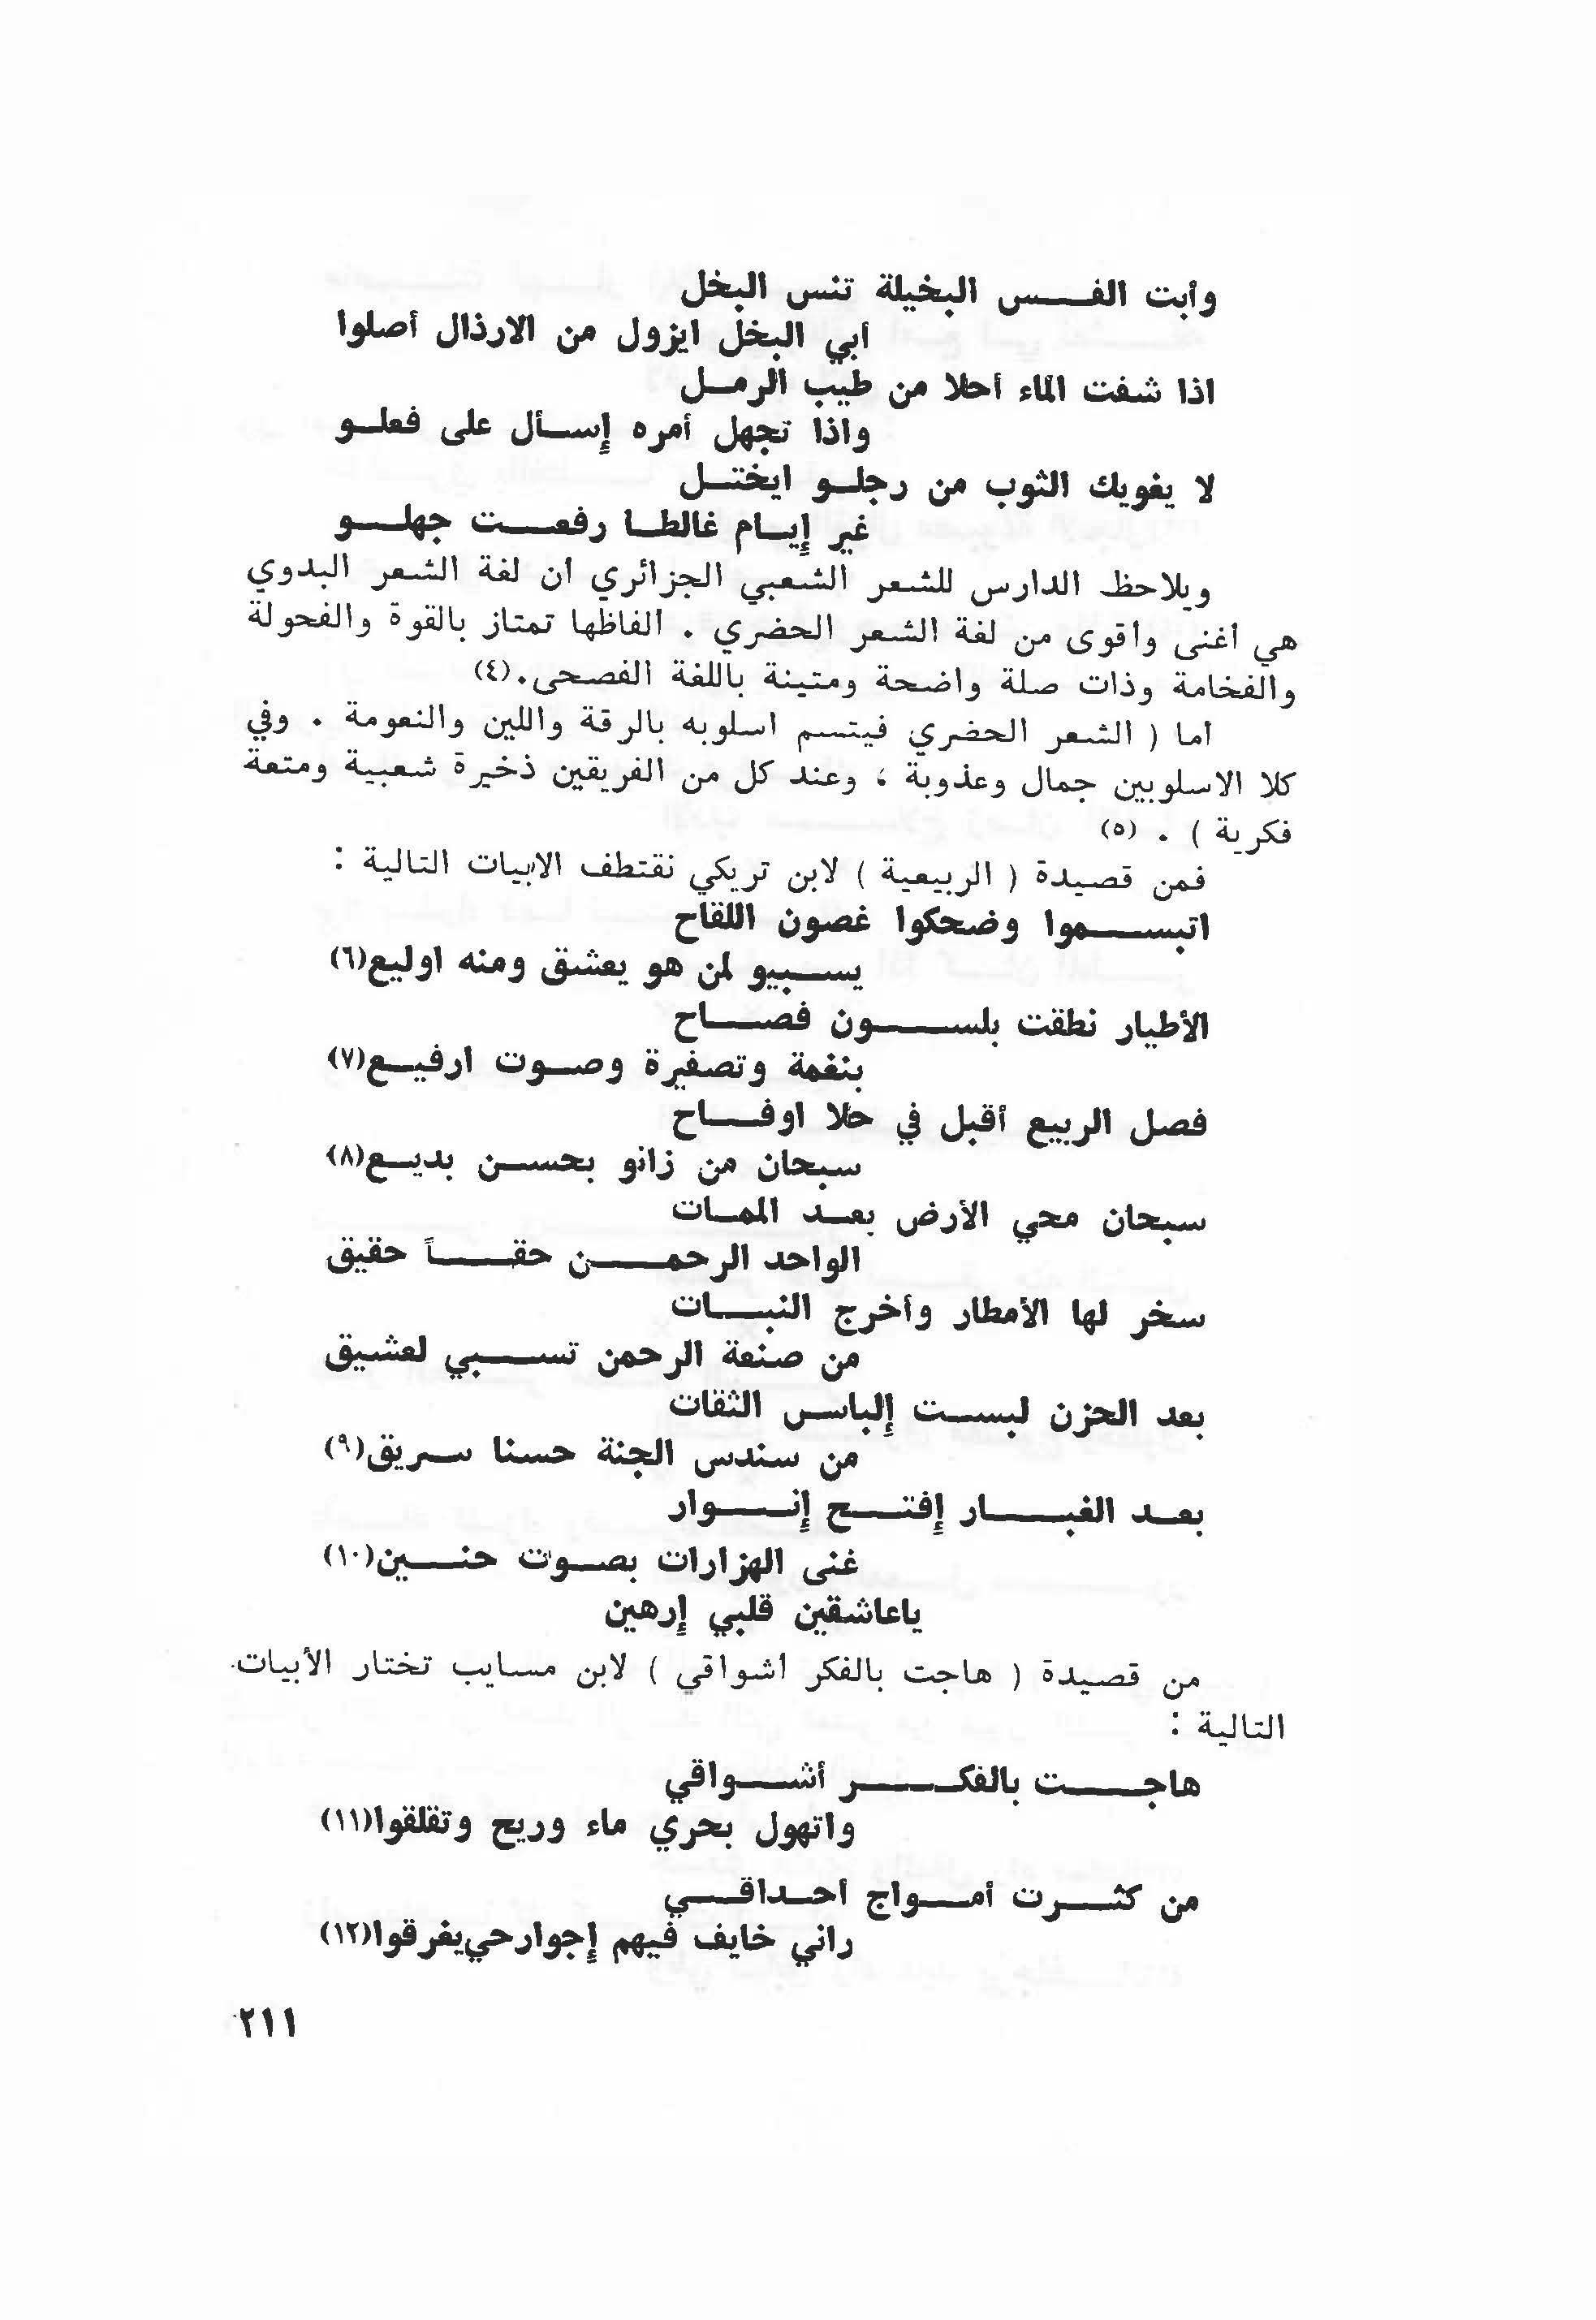 وأبت الفس البخيلة تنس البخل
أبي البخل ايزول من الارذال أصلوا
اذا شفت الماء أحلا من طيب الرمل
واذا تجهل أمره إسأل على فعلو
لا يغويك الثوب من رجلو ايختل
غير إيام غالطا رفعت جهلو
ويلاحظ الدارس للشعر الشعبي الجزائري أن لغة الشعر البدوي
هي أغنى وأقوى من لغة الشعر الحضري . الفاظها تمتاز بالقوة والفحولة
والفخامة وذات صلة واضحة ومتينة باللغة الفصحى.(٤)
أما ( الشعر الحضري فيتسم اسلوبه بالرقة واللين والنعومة . وفي
كلا الاسلوبين جمال وعذوبة ، وعند كل من الفريقين ذخيرة شعبية ومتعة
فكرية ) . (٥)
فمن قصيدة ( الربيعية ) لابن تريكي نقتطف الابيات التالية :
اتبسموا وضحكوا غصون اللقاح
يسبيو لمن هو يعشق ومنه اوليع(٦)
الأطيار نطقت بلسون فصاح
بنغمة وتصفيرة وصوت ارفيع(٧)
فصل الربيع أقبل في حلا اوفاح
سبحان من زانو بحسن بديع(٨)
سبحان محي الأرض بعد الممات
الواحد الرحمن حقاً حقيق
سخر لها الأمطار وأخرج النبات
من صنعة الرحمن تسبي لعشيق
بعد الحزن لبست إلباس الثقات
من سندس الجنة حسنا سريق(٩)
بعد الغبار إفتح إنوار
غنى الهزارات بصوت حنين(١٠)
ياعاشقين قلبي إرهين
من قصيدة ( هاجت بالفكر أشواقي ) لابن مسايب تختار الأبيات
التالية :
هاجت بالفكر أشواقي
واتهول بحري ماء وريح وتقلقوا(١١)
من كثرت أمواج أحداقي
راني خايف فيهم إجوارحي يغرقوا(١٢)
٢١١